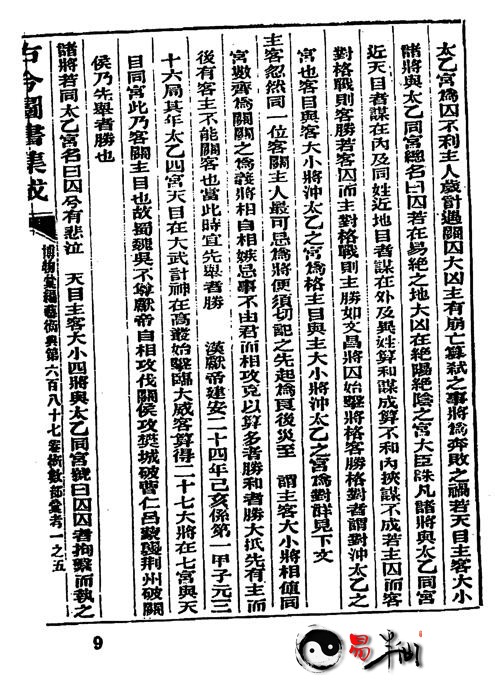 太乙宮爲囚不利主人歲計遇關囚大凶主有崩亡篡弒之事將爲奔敗之禍若天目主客大小
諸將與太乙同宮總名曰囚若在易絕之地大凶在絕陽絕陰之宮大臣誅凡諸將與太乙同宮
近天目者謀在內及同姓近地目者謀在外及異姓算和謀成算不和內挾謀不成若主囚而客
對格戰則客勝若客囚而主對格戰則主勝如文昌將囚始擊將格客勝格對者謂對沖太乙之
宮也客目與客大小將沖太乙之宮爲格主目與主大小將沖太乙之宮爲對詳見下文
謂主客大小將相値同
主客忽然同一位客關主人最可忌爲將便須切記之先起爲良後災至
宮數齊爲關關之爲義將相自相嫉忌事不由君而相攻克以算多者勝和者勝大抵先有主而
後有客主不能關客也當此時宜先舉者勝
漢獻帝建安二十四年己亥係第一甲子元三
十六局其年太乙四宮天目在大武計神在高叢始擊臨大威客算得二十七大將在七宮與天
目同宮此乃客關主目也故蜀魏吳不尊獻帝自相攻伐關侯攻樊城破曹仁呂蒙襲荆州破關
侯乃先舉者勝也
諸將若同太乙宮名曰囚兮有悲泣
天目主客大小四將與太乙同宮號曰囚囚者拘繫而執之
古今圖書集成
博物彙編藝術典第六百八十七卷術數部彙考一之五
9
易半仙